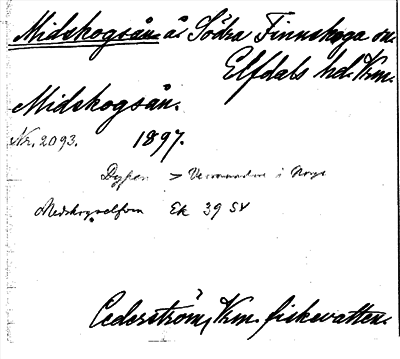 Midskogsån å i Södra Finnskoga sn.
Elfdals hd. Vrm.
Midskogsån.
Nr. 2093. 1897.
> i Norge
Medskogselfven Ek 39 SV
Cederström, Vrm. fiskevatten.